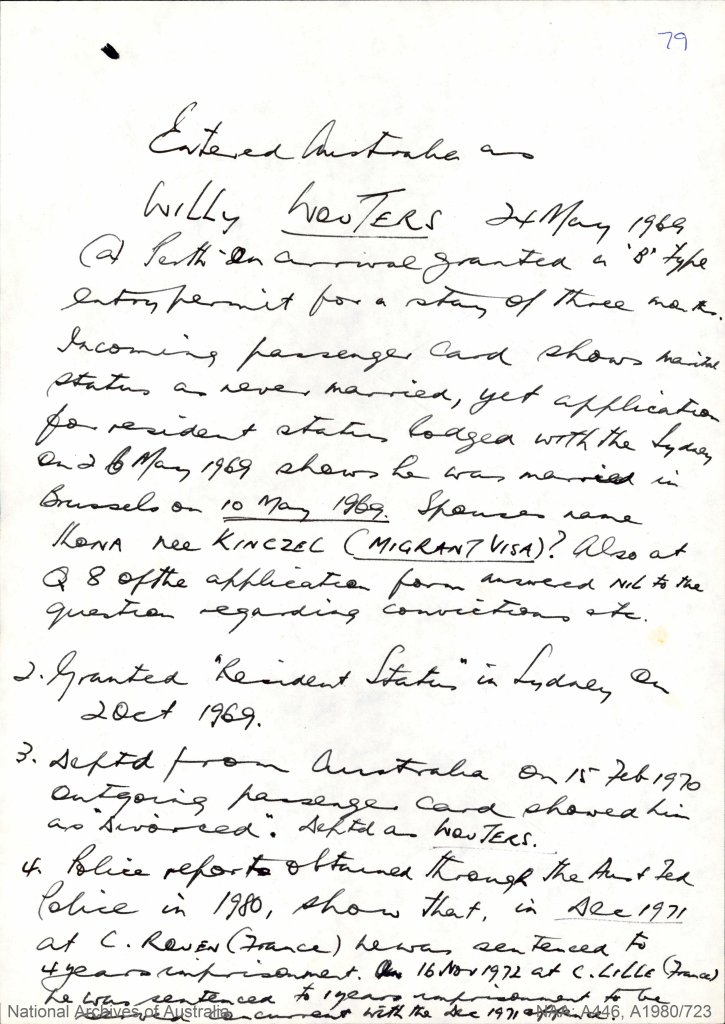 79
Entered Australia as
WILLY WOUTERS 24 May 1969
@ Perth on arrival granted a 'B' type
entry permit for a stay of three months.
Incoming passenger card shows marital
status as never married, yet application
for resident status lodged with the Sydney
on 26 May 1969 shows he was married in
Brussels on 10 May 1969. Spouses name
ILONA nee KINCZEL (MIGRANT VISA)? Also at
Q 8 of the application form answered NIL to the
question regarding convictions etc.
2. Granted "Resident Status" in Sydney on
2 Oct 1969.
3. Deptd from Australia on 15 Feb 1970
outgoing passenger card showed him
as "Divorced". Deptd as WOUTERS.
4. Police reports obtained through the Aust Fed
Police in 1980, show that, in Dec 1971
at C. ROUEN (France) he was sentenced to
4 years imprisonment. On 16 Nov 1972 at C. LILLE (France)
he was sentenced to 1 years imprisonment to be
served concurrent with the Dec 1971 offence.
National Archives of Australia NAA: A446, A1980/723